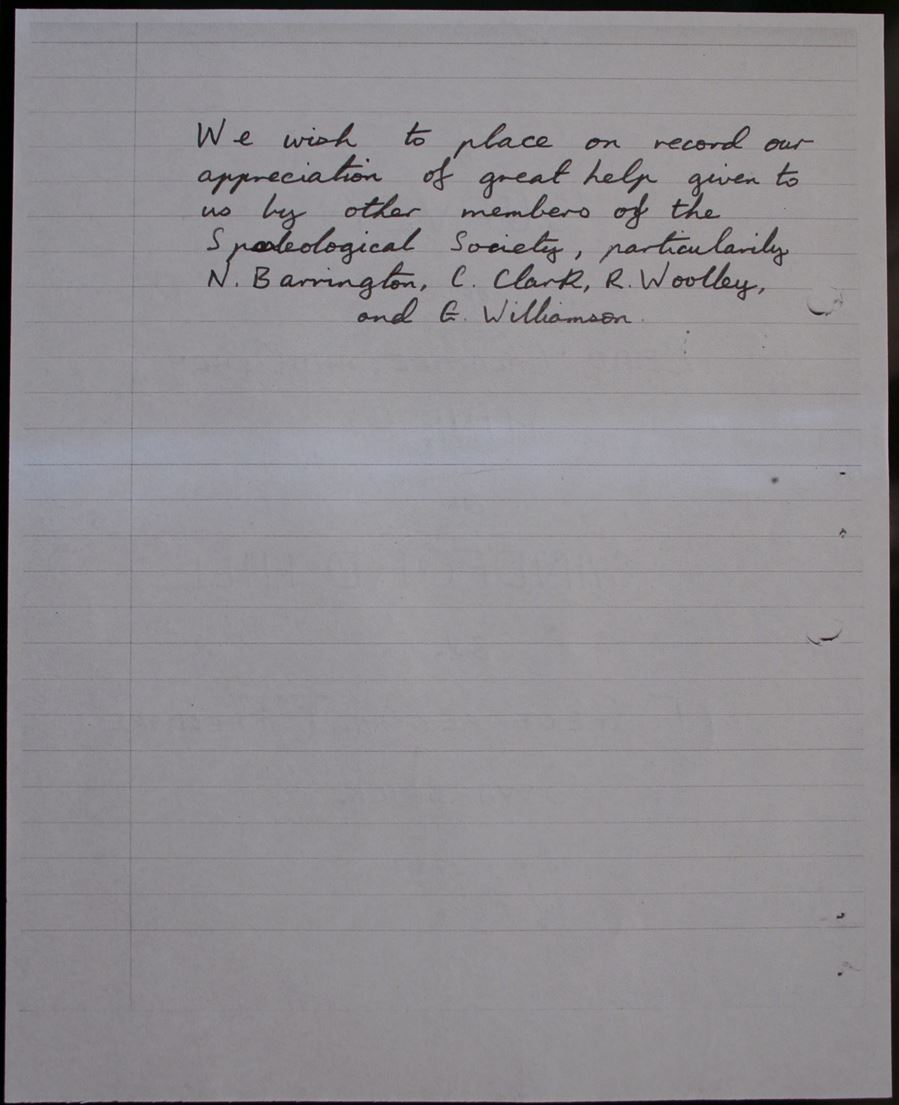 We wish to place on record our
appreciation of great help given to
us by other members of the
Speleological Society, particularily
N. Barrington, C. Clark, R. Woolley,
and G. Williamson.